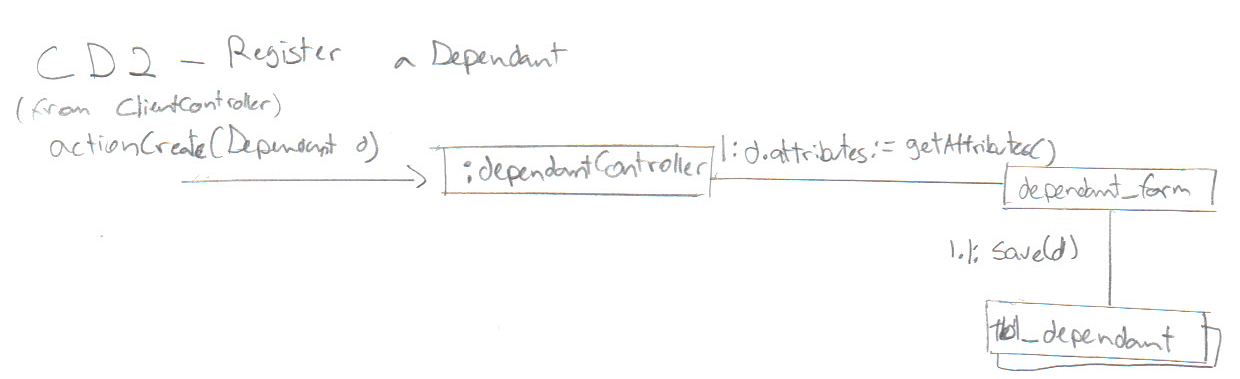 CD2 - Register a Dependant
(from ClientController)
actionCreate(Dependant d)
:dependantController
1: d.attributes:= getAttributes()
dependant_form
1.1: save(d)
tbl_dependant